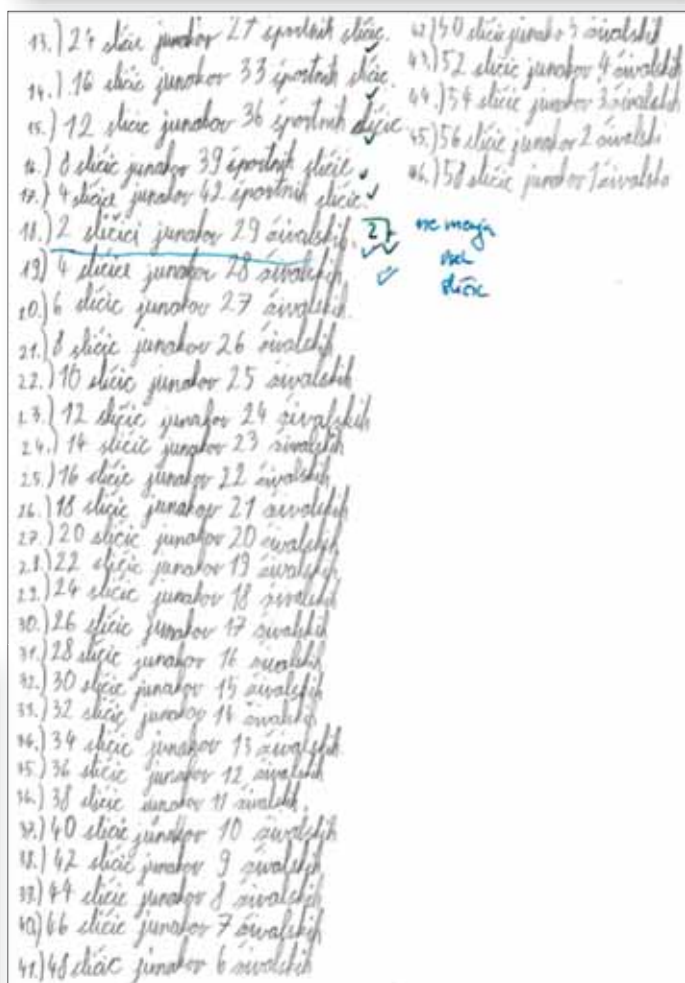 13.) 24 sličic junakov 27 športnih sličic.
14.) 16 sličic junakov 33 športnih sličic.
15.) 12 sličic junakov 36 športnih sličic
16.) 8 sličic junakov 39 športnih sličic
17.) 4 sličice junakov 42 športnih sličic
18.) 2 sličici junakov 29 živalskih.
19.) 4 sličice junakov 28 živalskih
20.) 6 sličic junakov 27 živalskih.
21.) 8 sličic junakov 26 živalskih
22.) 10 sličic junakov 25 živalskih
23.) 12 sličic junakov 24 živalskih
24.) 14 sličic junakov 23 živalskih
25.) 16 sličic junakov 22 živalskih
26.) 18 sličic junakov 21 živalskih
27.) 20 sličic junakov 20 živalskih
28.) 22 sličic junakov 19 živalskih
29.) 24 sličic junakov 18 živalskih
30.) 26 sličic junakov 17 živalskih
31.) 28 sličic junakov 16 živalskih
32.) 30 sličic junakov 15 živalskih
33.) 32 sličic junakov 14 živalskih
34.) 34 sličic junakov 13 živalskih
35.) 36 sličic junakov 12 živalskih
36.) 38 sličic junakov 11 živalskih
37.) 40 sličic junakov 10 živalskih
38.) 42 sličic junakov 9 živalskih
39.) 44 sličic junakov 8 živalskih
40.) 46 sličic junakov 7 živalskih
41.) 48 sličic junakov 6 živalskih
42.) 50 sličic junakov 5 živalskih
43.) 52 sličic junakov 4 živalskih
44.) 54 sličic junakov 3 živalskih
45.) 56 sličic junakov 2 živalski
46.) 58 sličic junakov 1 živalsko
2
ne
sličic